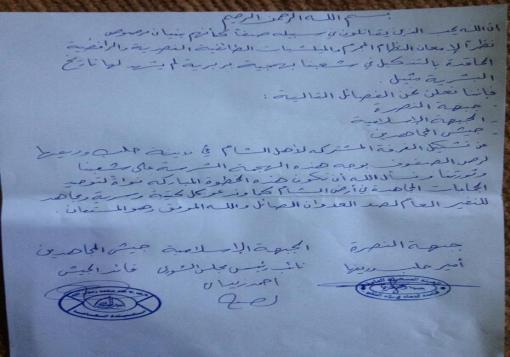 بسم الله الرحمن الرحيم
ان الله يحب الذين يقاتلون في سبيله صفا كأنهم بنيان مرصوص
نظرا لإمعان النظام المجرم والميليشيات الطائفية النصيرية والرافضية
الحاقدة بالتنكيل في شعبنا بهمجية بربرية لم يشهد لها تاريخ
البشرية مثيل
فإننا نعلن نحن الفصائل التالية :
- جبهة النصرة
- الجبهة الإسلامية
- جيش المجاهدين
عن تشكيل الغرفة المشتركة لأهل الشام في مدينة حلب وريفها
لرص الصفوف بوجه هذه الهجمة الشرسة على شعبنا
وثورتنا ونسأل الله أن تكون هذه الخطوة المباركة نواة لتوحيد
الجماعات المجاهدة في أرض الشام كما وندعو كل كتيبة وسرية ومجاهد
للنفير العام لصد العدوان الصائل والله الموفق وهو المستعان
جبهة النصرة الجبهة الإسلامية جيش المجاهدين
أمير حلب وريفها نائب رئيس مجلس الشورى قائد الجيش
احمد